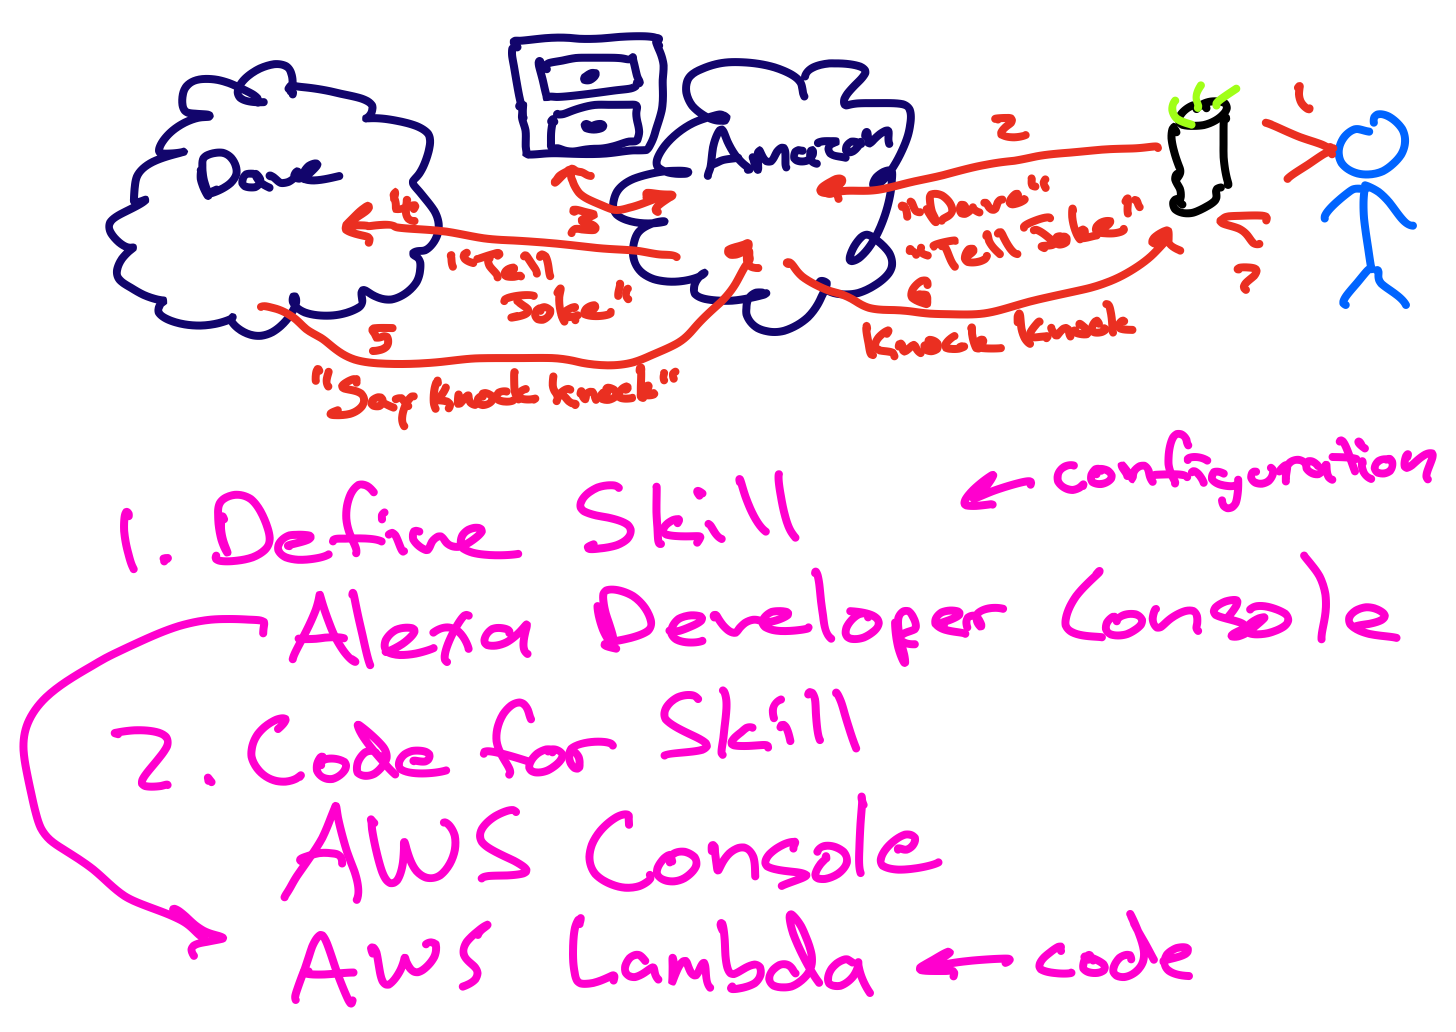 Dave
Amazon
1
2
"Dave"
"Tell Joke"
3
4
"Tell
Joke"
5
"Say knock knock"
6
Knock Knock
7
1. Define Skill ← configuration
Alexa Developer Console
2. Code for Skill
AWS Console
AWS Lambda ← code